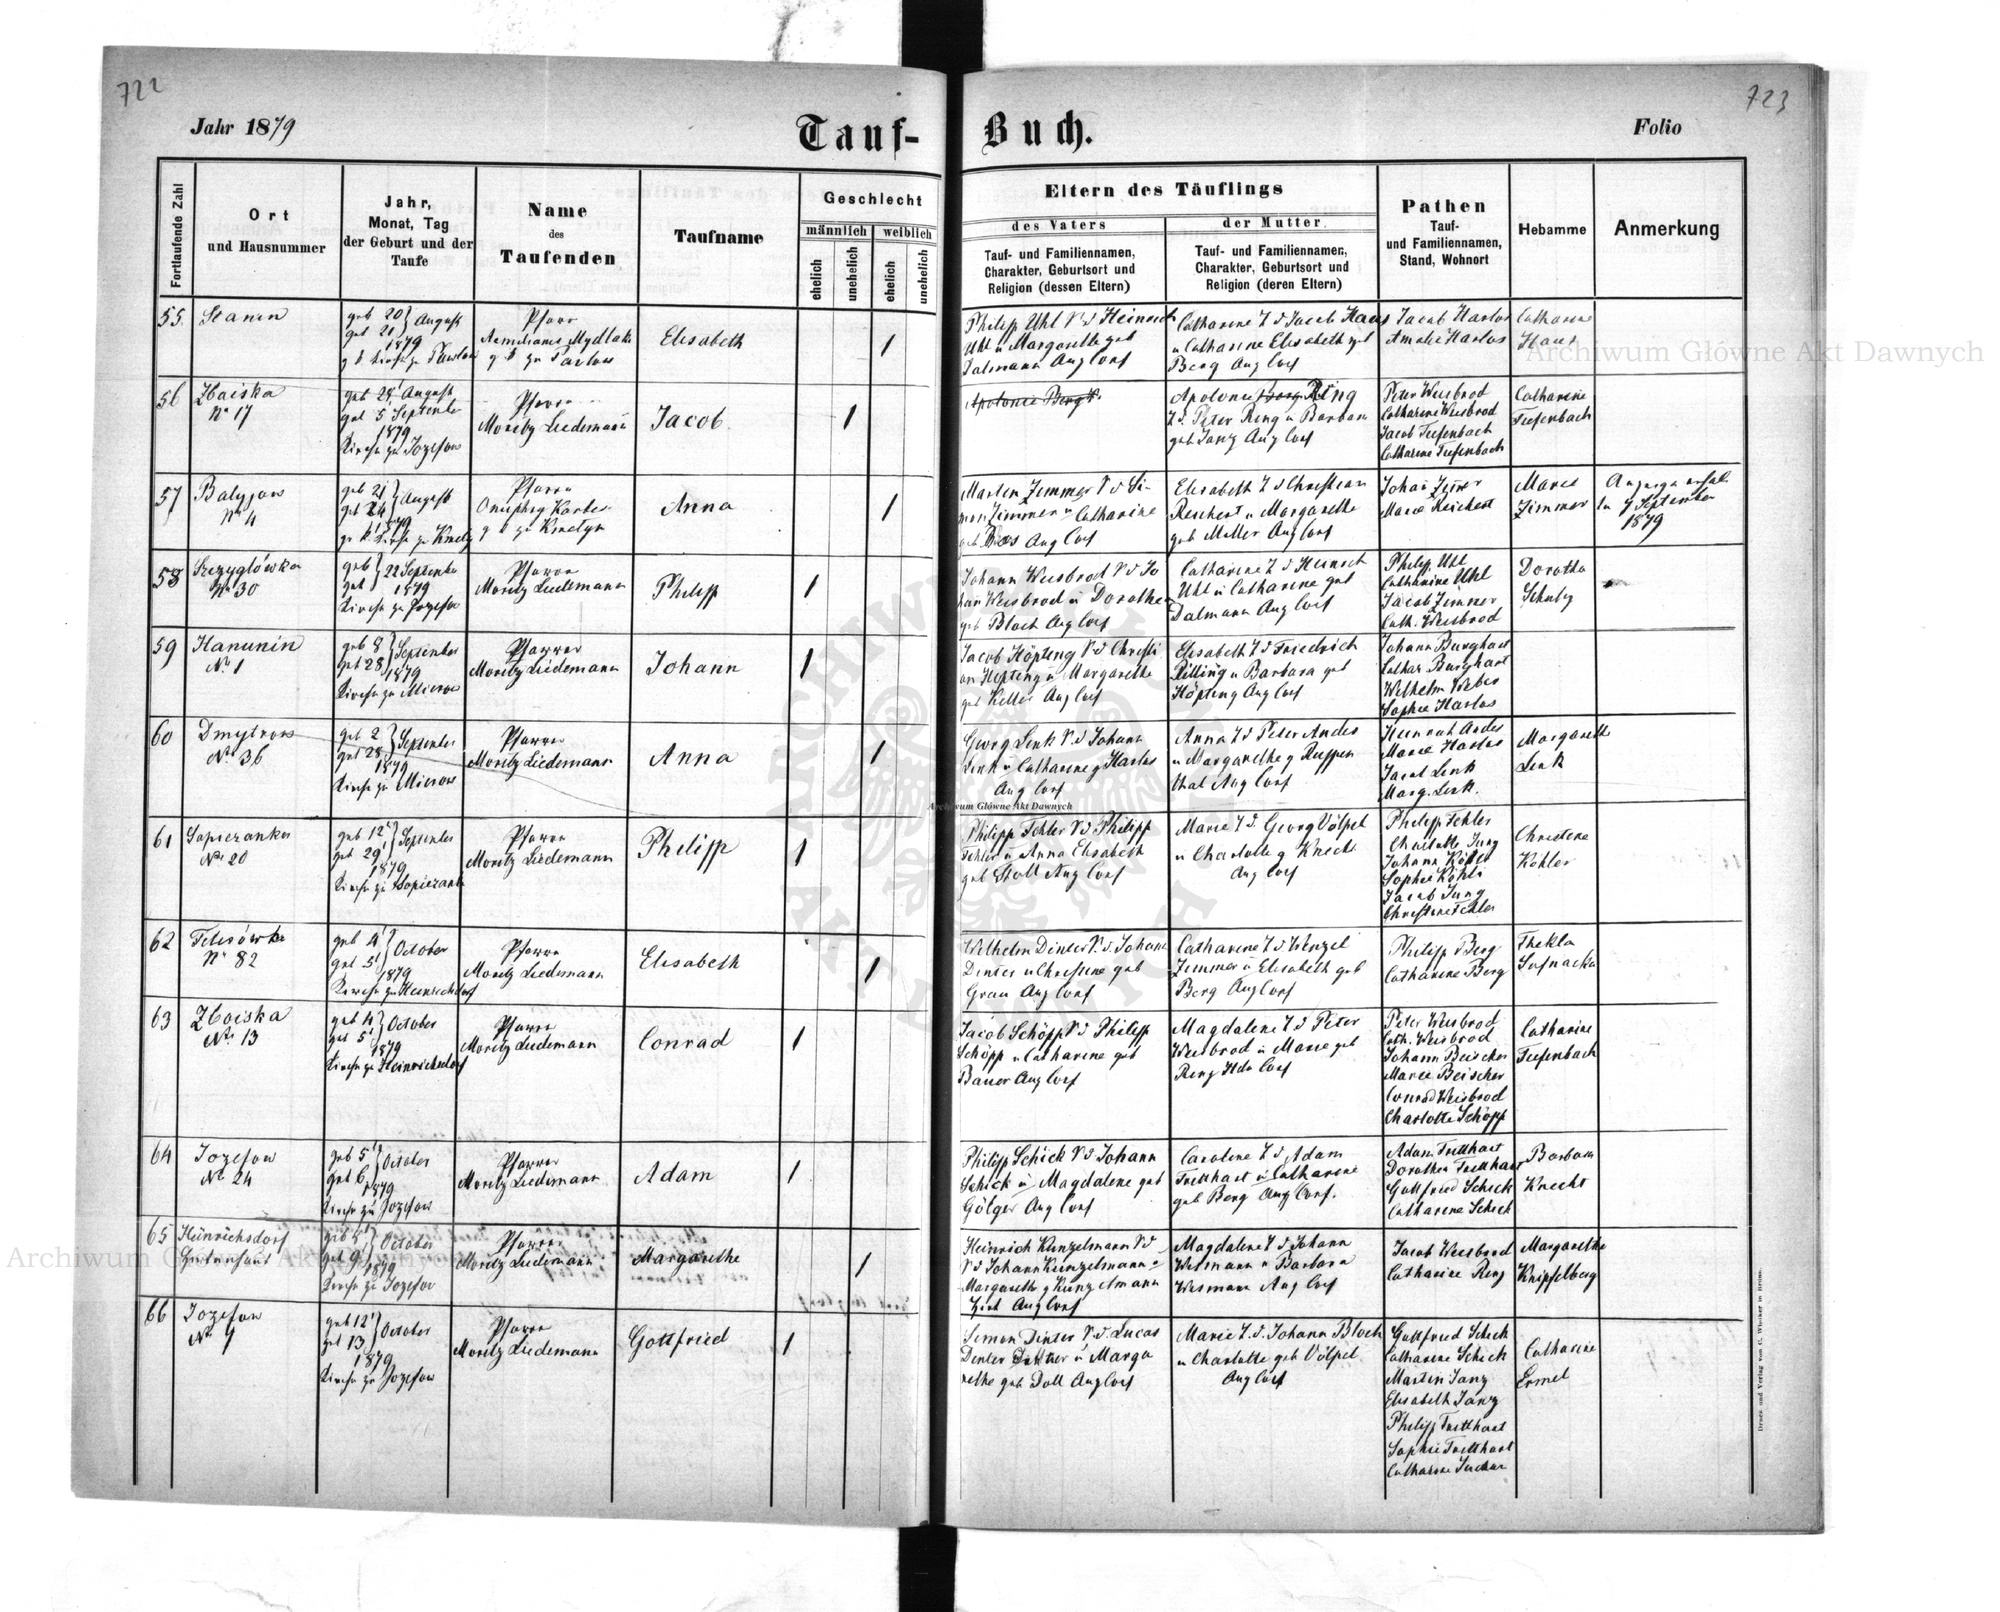 722
723
Jahr 1879
Tauf-
Buch.
Folio
Fortlaufende Zahl
Ort
und Hausnummer
Jahr,
Monat, Tag
der Geburt und der
Taufe
Name
des
Taufenden
Taufname
Geschlecht
männlich
weiblich
ehelich
unehelich
ehelich
unehelich
Eltern des Täuflings
des Vaters
Tauf- und Familiennamen,
Charakter, Geburtsort und
Religion (dessen Eltern)
der Mutter
Tauf- und Familiennamen,
Charakter, Geburtsort und
Religion (deren Eltern)
Pathen
Tauf-
und Familiennamen,
Stand, Wohnort
Hebamme
Anmerkung
55.
Stanin
geb 20
get 21 August
1879
Pfarr
Elisabeth
1
Philipp Uhl V d Heinrich
Uhl u Margarethe geb
Dalmann Aug Conf
Catharine T d Jacob Haus
u Catharine Elisabeth geb
Berg Aug Conf
Jacob Harlos
Amalie Harlos
Catharine
Haus
56
Zboiska
Nr 17
geb 28 August
get 5 September
1879
Kirche zu Jozefow
Pfarrer
Moritz Liedemann
Jacob
1
Apolonia
Apolonia Ring
T d. Peter Ring u Barbara
geb Janz Aug Conf
Peter Weisbrod
Catharine Weisbrod
Jacob Tiefenbach
Catharine Tiefenbach
Catharine
Tiefenbach
57
Nr 4
geb 21
get 24 August
1879
Pfarrer
Anna
1
Martin Zimmer V d Si-
mon Zimmer u Catharine
Aug Conf
Elisabeth T d Christian
Reichert u Margarethe
geb Müller Aug Conf
Marie Reichert
Marie
Zimmer
7 September
1879
58
Szczyglówka
Nr 30
geb
get 22 September
1879
Kirche zu Jozefow
Pfarrer
Moritz Liedemann
Philipp
1
Johann Weisbrod V d Jo
hann Weisbrod u Dorothea
geb Bloch Aug Conf
Catharine T d Heinrich
Uhl u Catharine geb
Dalmann Aug Conf
Philipp Uhl
Catharine Uhl
Jacob Zimmer
Cath. Weisbrod
Dorothea
Schulz
59
Hanunin
Nr 1
geb 8
get 28 September
1879
Kirche zu Mierow
Pfarrer
Moritz Liedemann
Johann
1
Jacob Höpting V d Christi
an Hepting u Margarethe
geb Keller Aug Conf
Elisabeth T d Friedrich
Rilling u Barbara geb
Höpting Aug Conf
Johann Burghart
Cathar Burghart
Wilhelm Weber
Sophie Harlos
60
Dmytrow
Nr 36
geb 2
get 28 September
1879
Kirche zu Mierow
Pfarrer
Moritz Liedemann
Anna
1
Georg Link V d Johann
Link u Catharine g Harlos
Aug Conf
Anna T d Peter Andes
u Margarethe g Ruppen
thal Aug Conf
Heinrich Andes
Marie Harlos
Jacob Link
Marg. Link.
Margarethe
Link
61
Sapiezanka
Nr 20
geb 12
get 29 September
1879
Kirche zu Sapiezanka
Pfarrer
Moritz Liedemann
Philipp
1
Philipp Fehler V d Philipp
Fehler u Anna Elisabeth
geb Stoll Aug Conf
Marie T. d. Georg Völpel
u Charlotte g Knecht
Aug Conf
Philipp Fehler
Charlotte Jung
Johann Köhler
Sophie Köhli
Jacob Jung
Christine Fehler
Christine
Köhler
62
Nr 82
geb 4
get 5 October
1879
Kirche zu Heinrichsdorf
Pfarrer
Moritz Liedemann
Elisabeth
1
Wilhelm Dinter V. d. Johann
Dinter u Christine geb
Grau Aug Conf
Catharine T d Wenzel
Zimmer u Elisabeth geb
Berg Aug Conf
Philipp Berg
Catharine Berg
Thekla
63
Zboiska
Nr. 13
geb 4
get 5 October
1879
Kirche zu Heinrichsdorf
Pfarrer
Moritz Liedemann
Conrad
1
Jacob Schöpp V d Philipp
Schöpp u Catharine geb
Bauer Aug Conf
Magdalene T d Peter
Weisbrod u Marie geb
Ring Conf
Peter Weisbrod
Cath. Weisbrod
Johann Beischer
Marie Beischer
Conrad Weisbrod
Charlotte Schöpp
Catharine
Tiefenbach
64
Jozefow
Nr 24
geb 5
get 6 October
1879
Kirche zu Jozefow
Pfarrer
Moritz Liedemann
Adam
1
Philipp Schick V d Johann
Schick u Magdalene geb
Gölger Aug Conf
Caroline T d Adam
Tretthart u Catharine
geb Berg Aug Conf.
Adam Tretthart
Dorothea Tretthart
Gottfried Schick
Catharine Schick
Barbara
Knecht
65
Heinrichsdorf
geb 8
get 9 October
1879
Kirche zu Jozefow
Pfarrer
Moritz Liedemann
Margarethe
1
Heinrich Kunzelmann V d
V d Johann Kunzelmann u
Margarethe g Kunzelmann
Aug Conf
Magdalene T d Johann
Wismann u Barbara
Wismann Aug Conf
Jacob Weisbrod
Catharine Ring
Margarethe
Knipfelberg
66
Jozefow
Nr 1
geb 12
get 13 October
1879
Kirche zu Jozefow
Pfarrer
Moritz Liedemann
Gottfried
1
Simon Dinter V. d. Lucas
Dinter u Marga
rethe geb Doll Aug Conf
Marie T. d. Johann Bloch
u Charlotte geb Völpel
Aug Conf
Gottfried Schick
Catharine Schick
Martin Janz
Elisabeth Janz
Philipp Tretthart
Sophie Tretthart
Catharine
Ermel
Druck und Verlag von C. Winiker in Brünn.
Archiwum Główne Akt Dawnych
Archiwum Główne Akt Dawnych
Archiwum Główne Akt Dawnych
ARCHIWUM GŁÓWNE AKT DAWNYCH